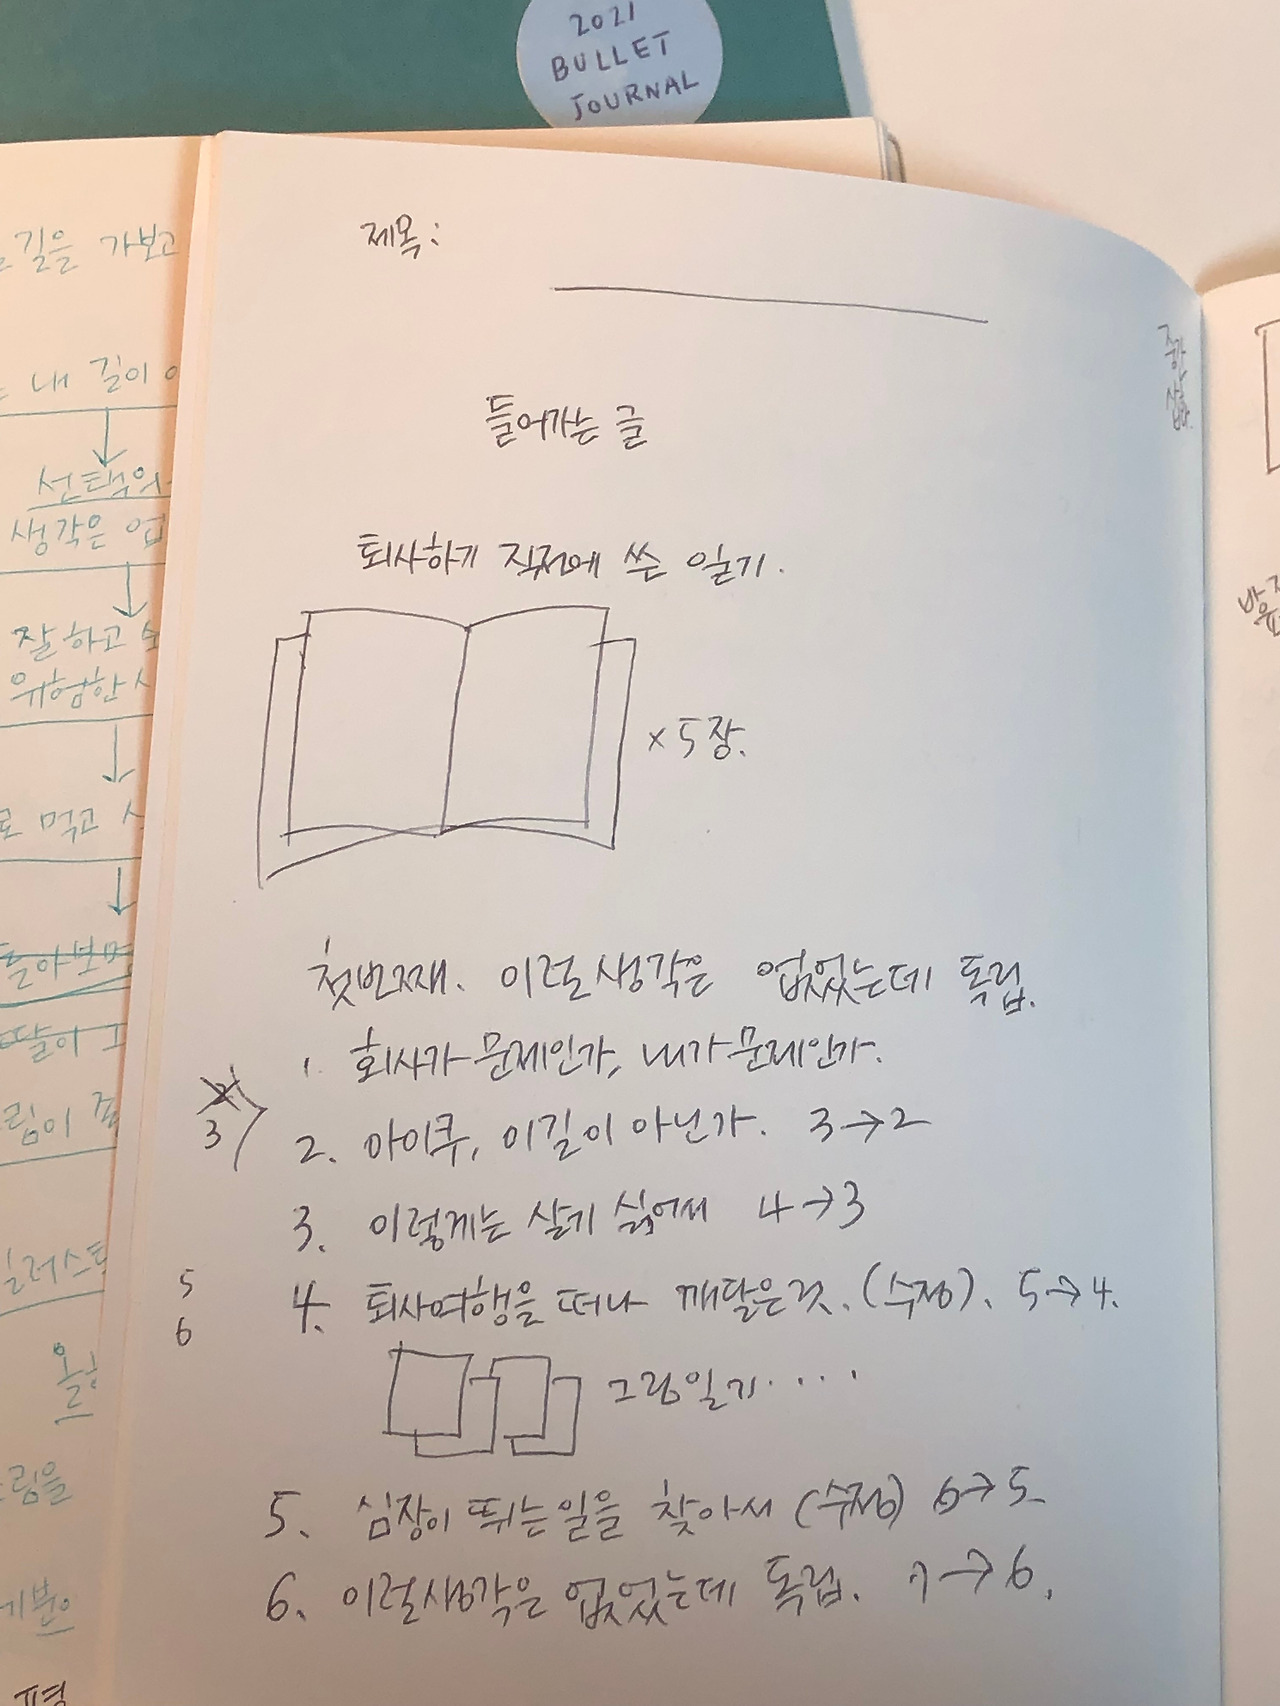 2021
BULLET
JOURNAL
길을 가보고
내 길이
선택의
생각은 업
잘하고
위험한
먹고
돌아보면
딸아
림이
일러스트
림을
기분
평
제목:
들어가는 글
퇴사하기 직전에 쓴 일기.
× 5장.
첫번째. 이럴생각은 없었는데 독립.
1. 회사가 문제인가, 내가 문제인가.
3
2. 아이쿠, 이길이 아닌가. 3→2
3. 이렇게는 살기 싫어서 4→3
5
6
4. 퇴사여행을 떠나 깨달은것. (수정). 5→4.
그림일기....
5. 심장이 뛰는일을 찾아서 (수정) 6→5
6. 이럴생각은 없었는데 독립. 7→6.
중간
삽화